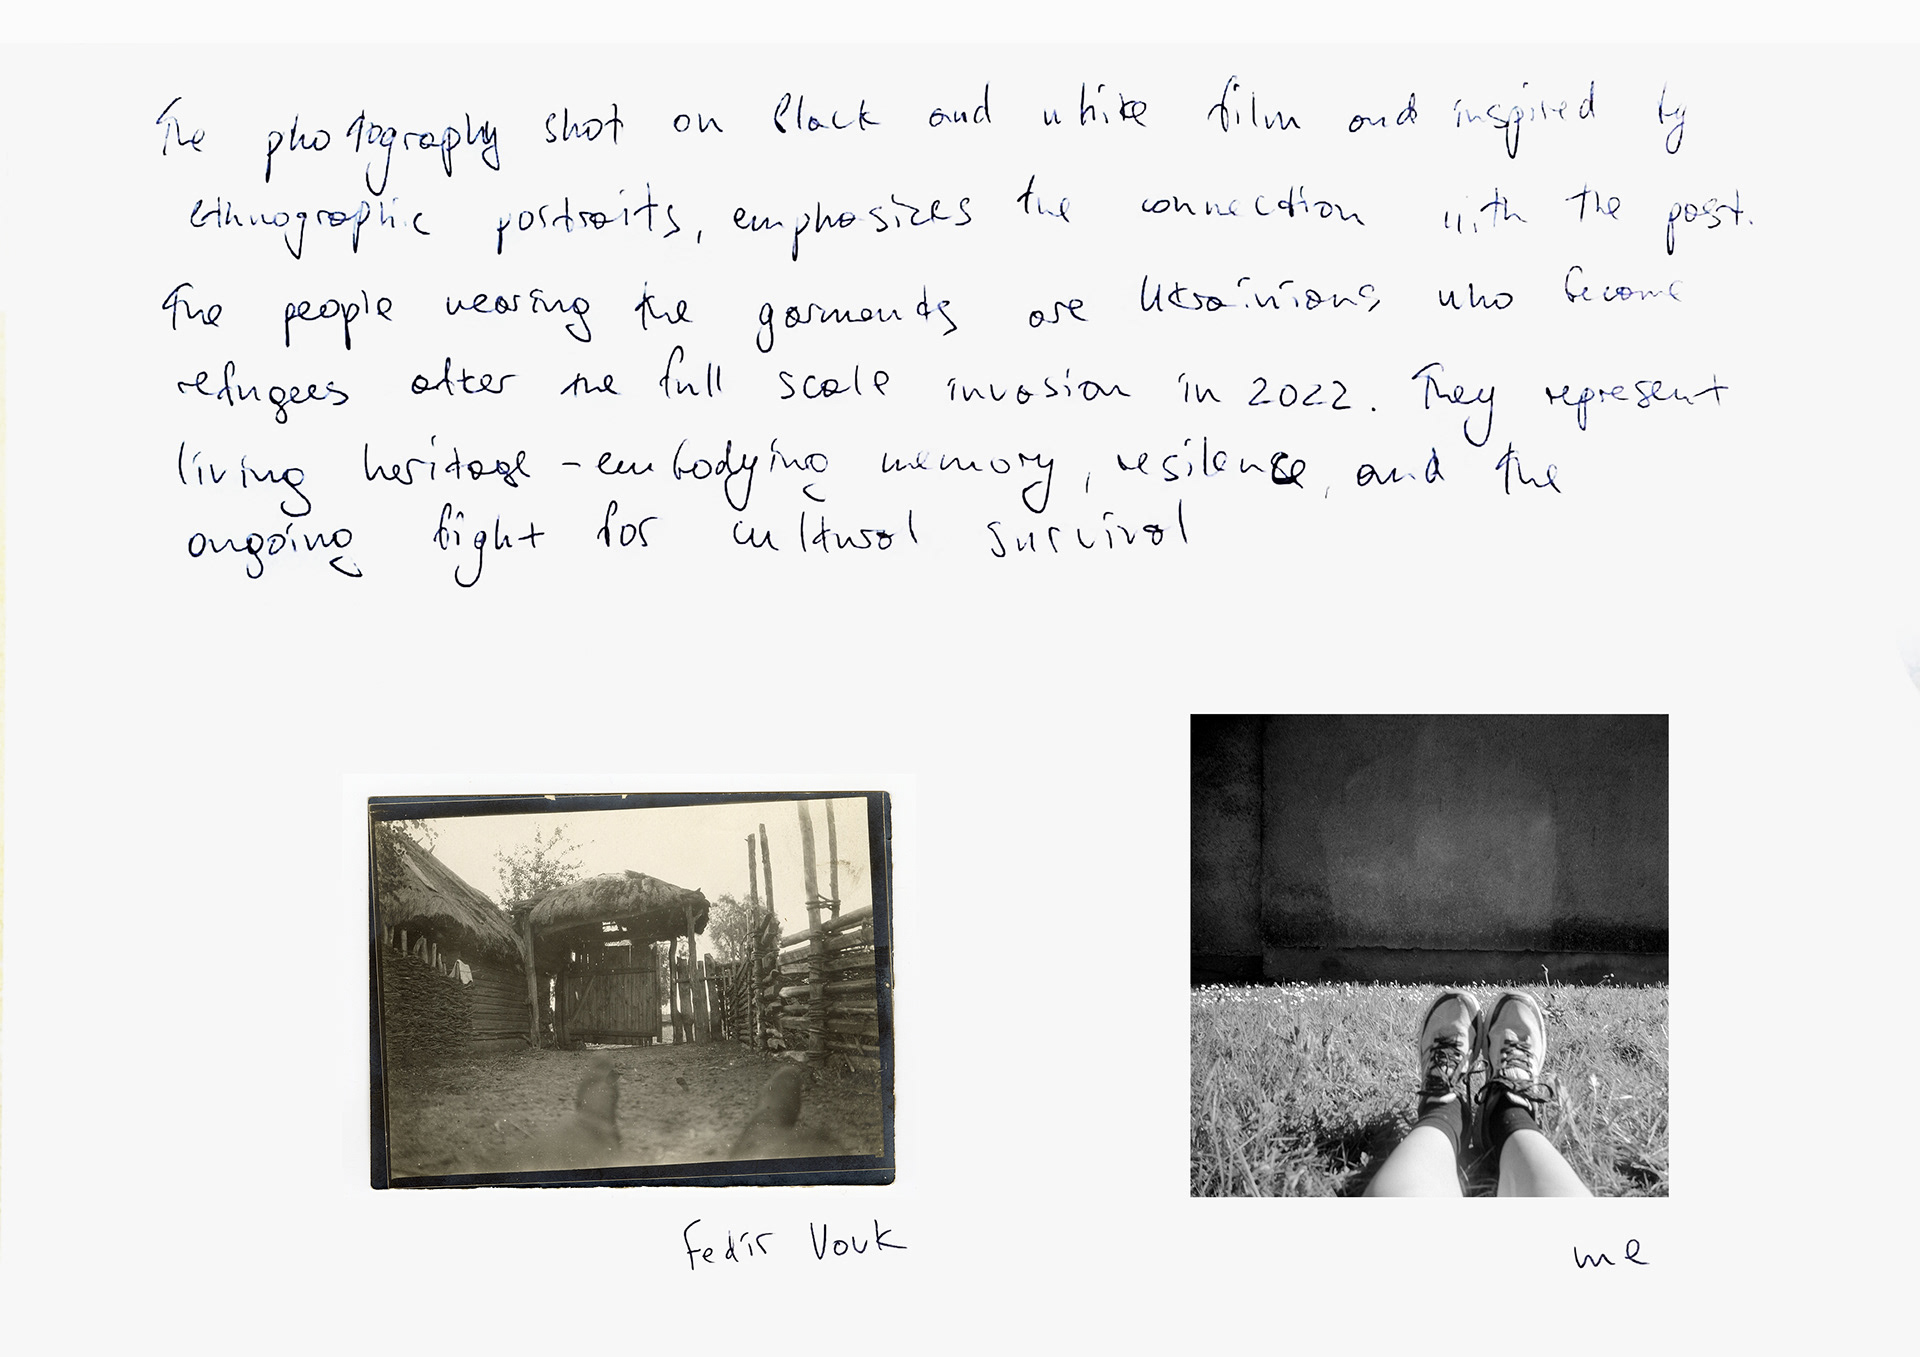 The photography shot on black and white film and inspired by
ethnographic portraits, emphasizes the connection with the past.
The people wearing the garments are Ukrainians who become
refugees after the full scale invasion in 2022. They represent
living heritage - embodying memory, resilence, and the
ongoing fight for cultural survival
Fedir Vovk
me